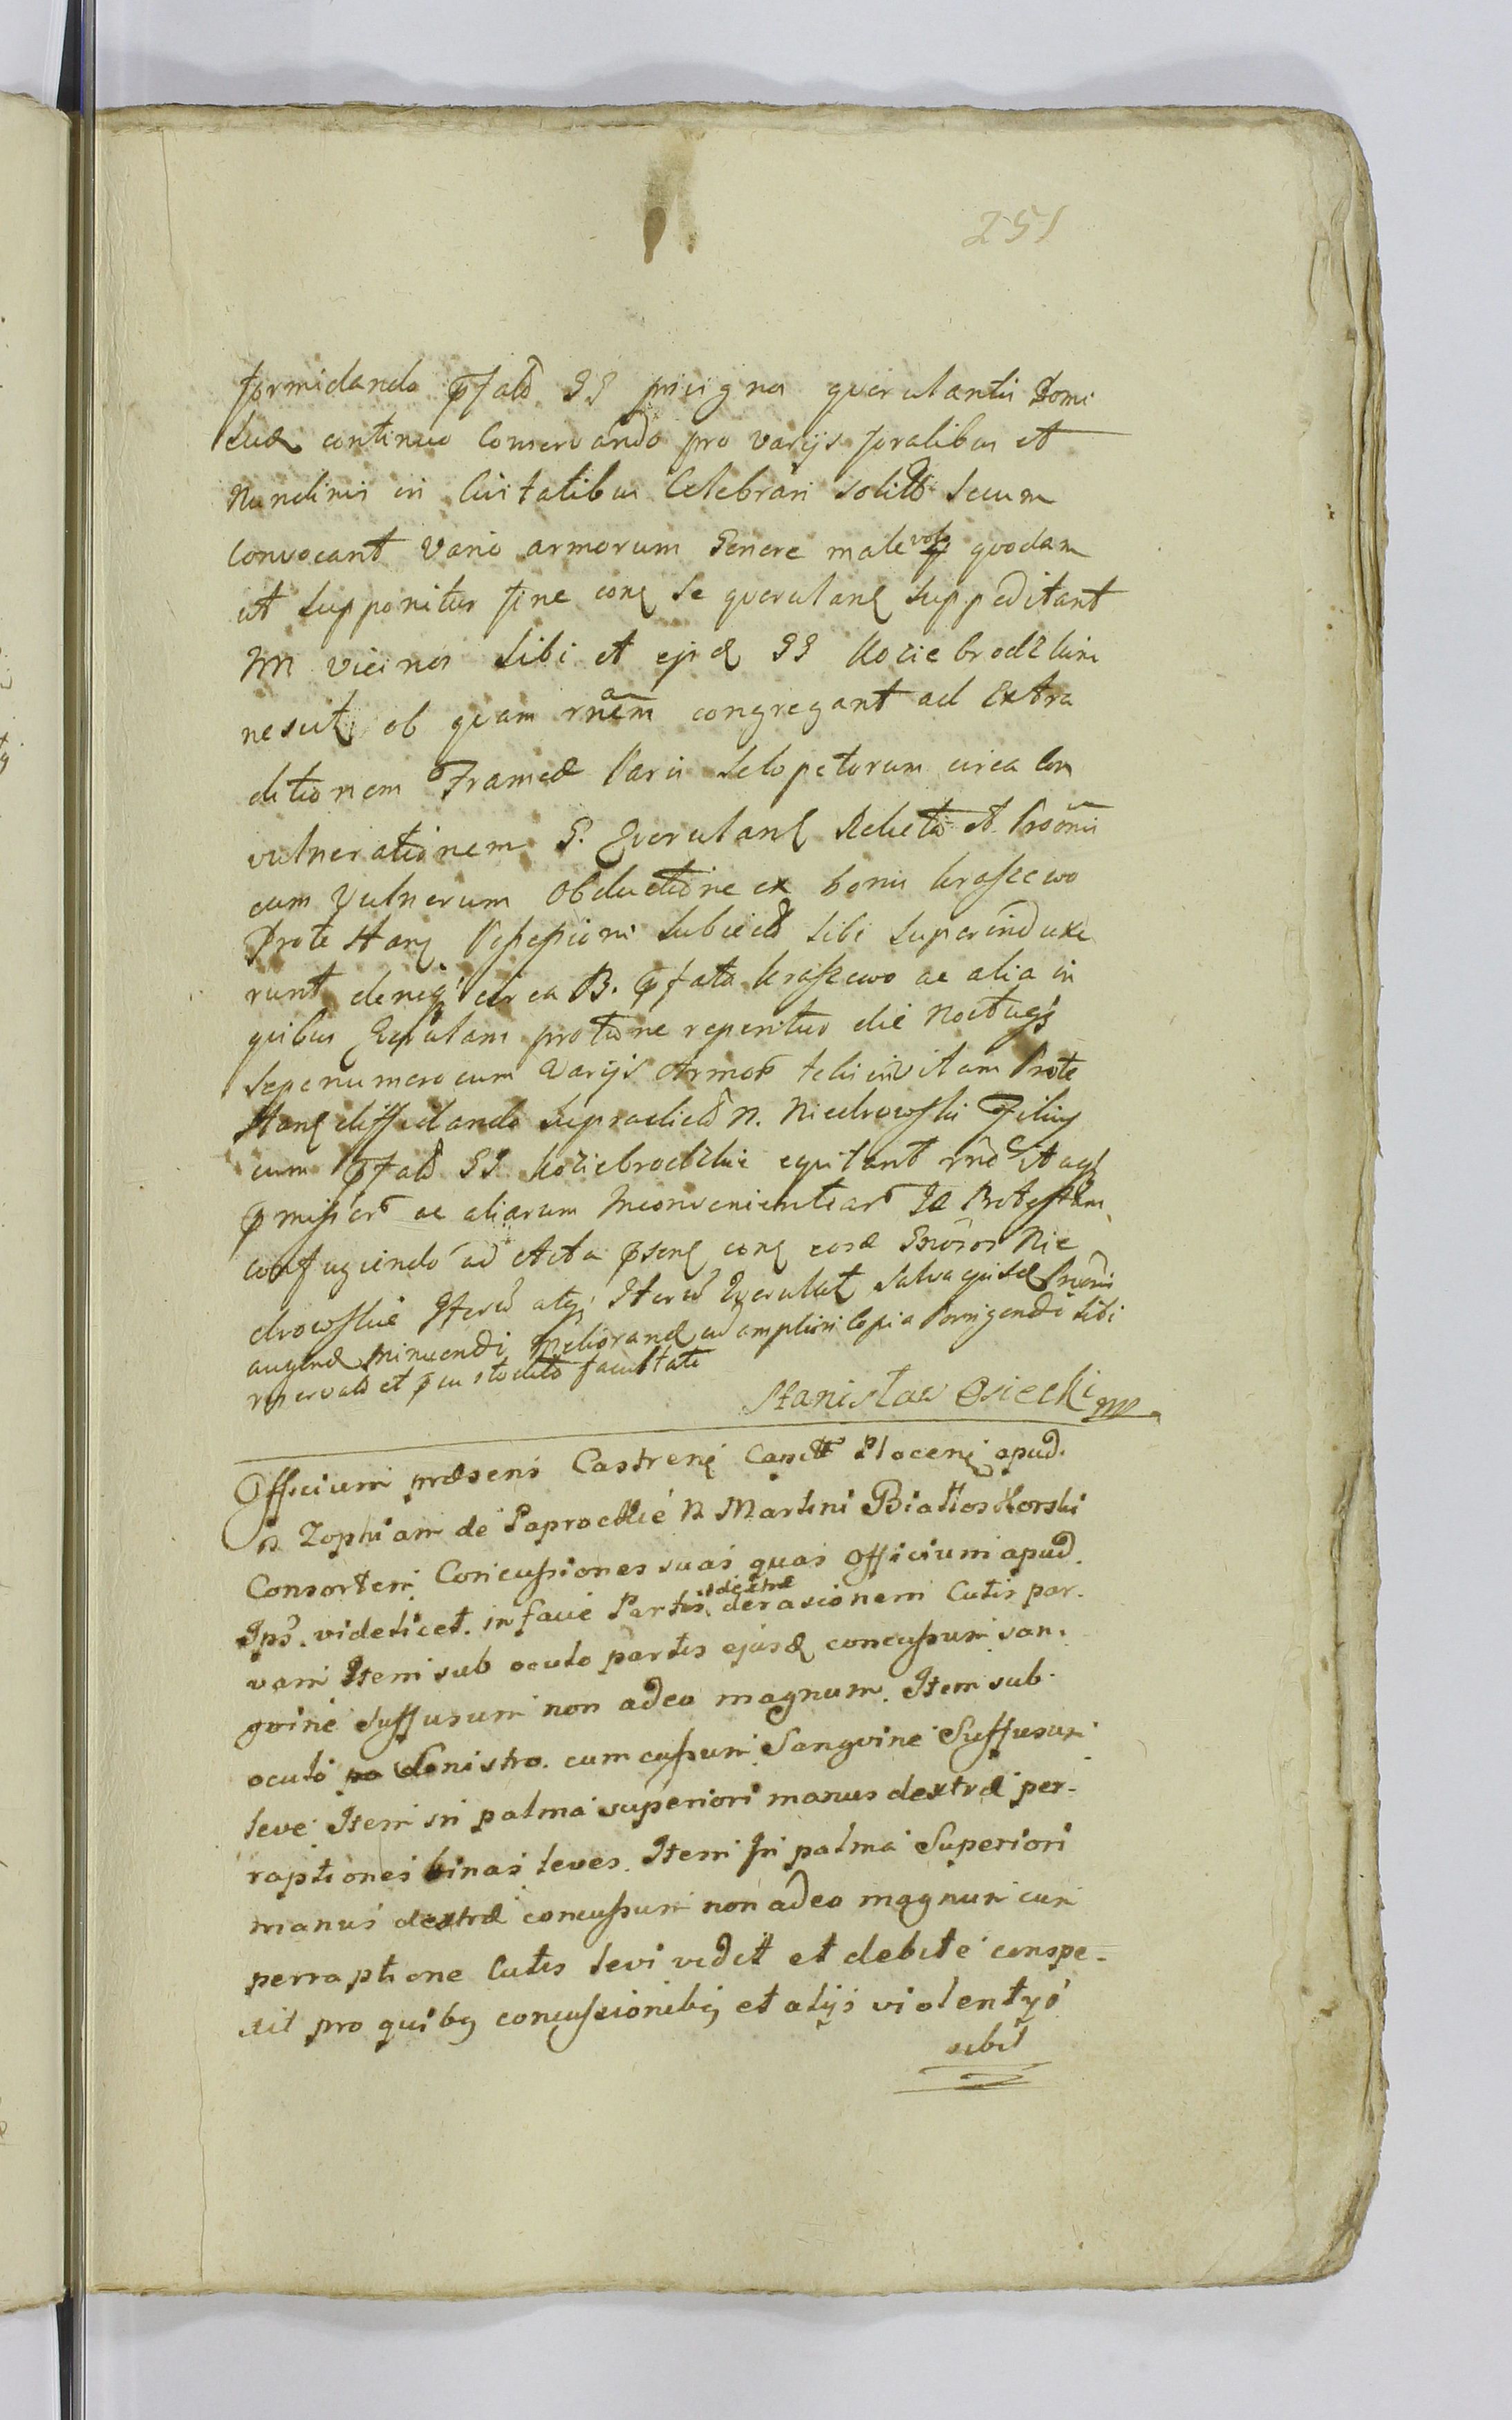 251
formidando pfatõ GG privigna querulantis Domi
suæ continuo Conservando pro varijs foralibus et
Nundinis in Civitatibus Celebrari solitis secum
Convocant vario armorum Genere malevolo quodam
ut supponitur fine conq se querulanq suppeditant
vicinos sibi et ejusd GG Koziebrodzkim
ob quam rnem congregant ad Extra
ditionem Frameæ Sclopetorum circa Con
vulnerationem G. Querulanq Relictæ et
cum Vulnerum Obductione ex bonis Kraszewo
Protestanq subiectõ sibi superinduxe
runt deniq circa B. pfata Kraszewo ac alia in
quibus protune reperitur die Noctuq
sepenumero cum Varijs Armor telis in vitam Prote
stanq diffidando supradictõ N. Niedrowski Filius
cum pfatõ GG Koziebrodzkie equitant
pmissorõ ac aliarum Inconvenientiarõ Protestan
confugiendo ad Acta psenq conq eosd Nie
drowskie Iterũ atq Iterũ Querulat salva ejusd
augend minuendi Meliorand ad amplioris Copia Porrigendi sibi
reservatõ et pcustoditõ facultate
Stanisław Osiecki mp
Officium præsens Castrenẽ Capitl Plocenẽ apud
N Zophiam de Paprockie N Martini Białłoskorski
Consortem Concussiones suas quas Officium apud
Ips. videlicet. in facie Partis dextræ derasionem Cutis par-
vam Item sub oculo partis ejusd concussum san-
gvine Suffusum non adeo magnum. Item sub
oculo sinistro. cumcussum Sangvine Suffusum
leve Item in palma superiori manus dextræ per-
raptiones binas leves. Item In palma Superiori
manus dextræ concussum non adeo magnum cum
perraptione Cutis levi vidit et debite conspe-
xit pro quibq concussionibq et alijs violentys